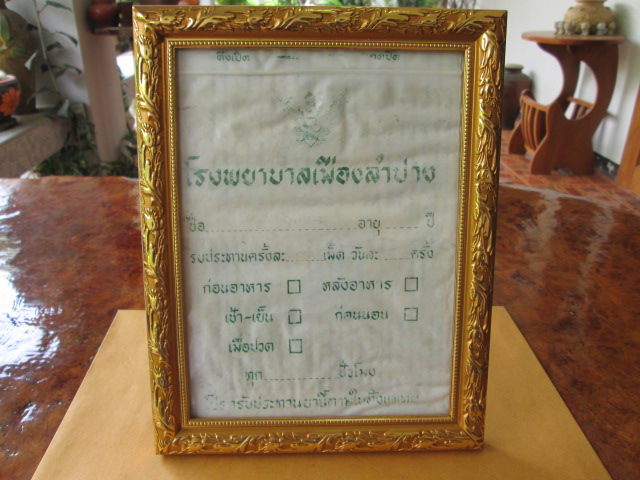 โรงพยาบาลเมืองลำปาง
ชื่อ.................... อายุ....... ปี
รับประทานครั้งละ.......เม็ด วันละ.......ครั้ง
ก่อนอาหาร □ หลังอาหาร □
เช้า-เย็น □ ก่อนนอน □
เมื่อปวด □
ทุก............... ชั่วโมง